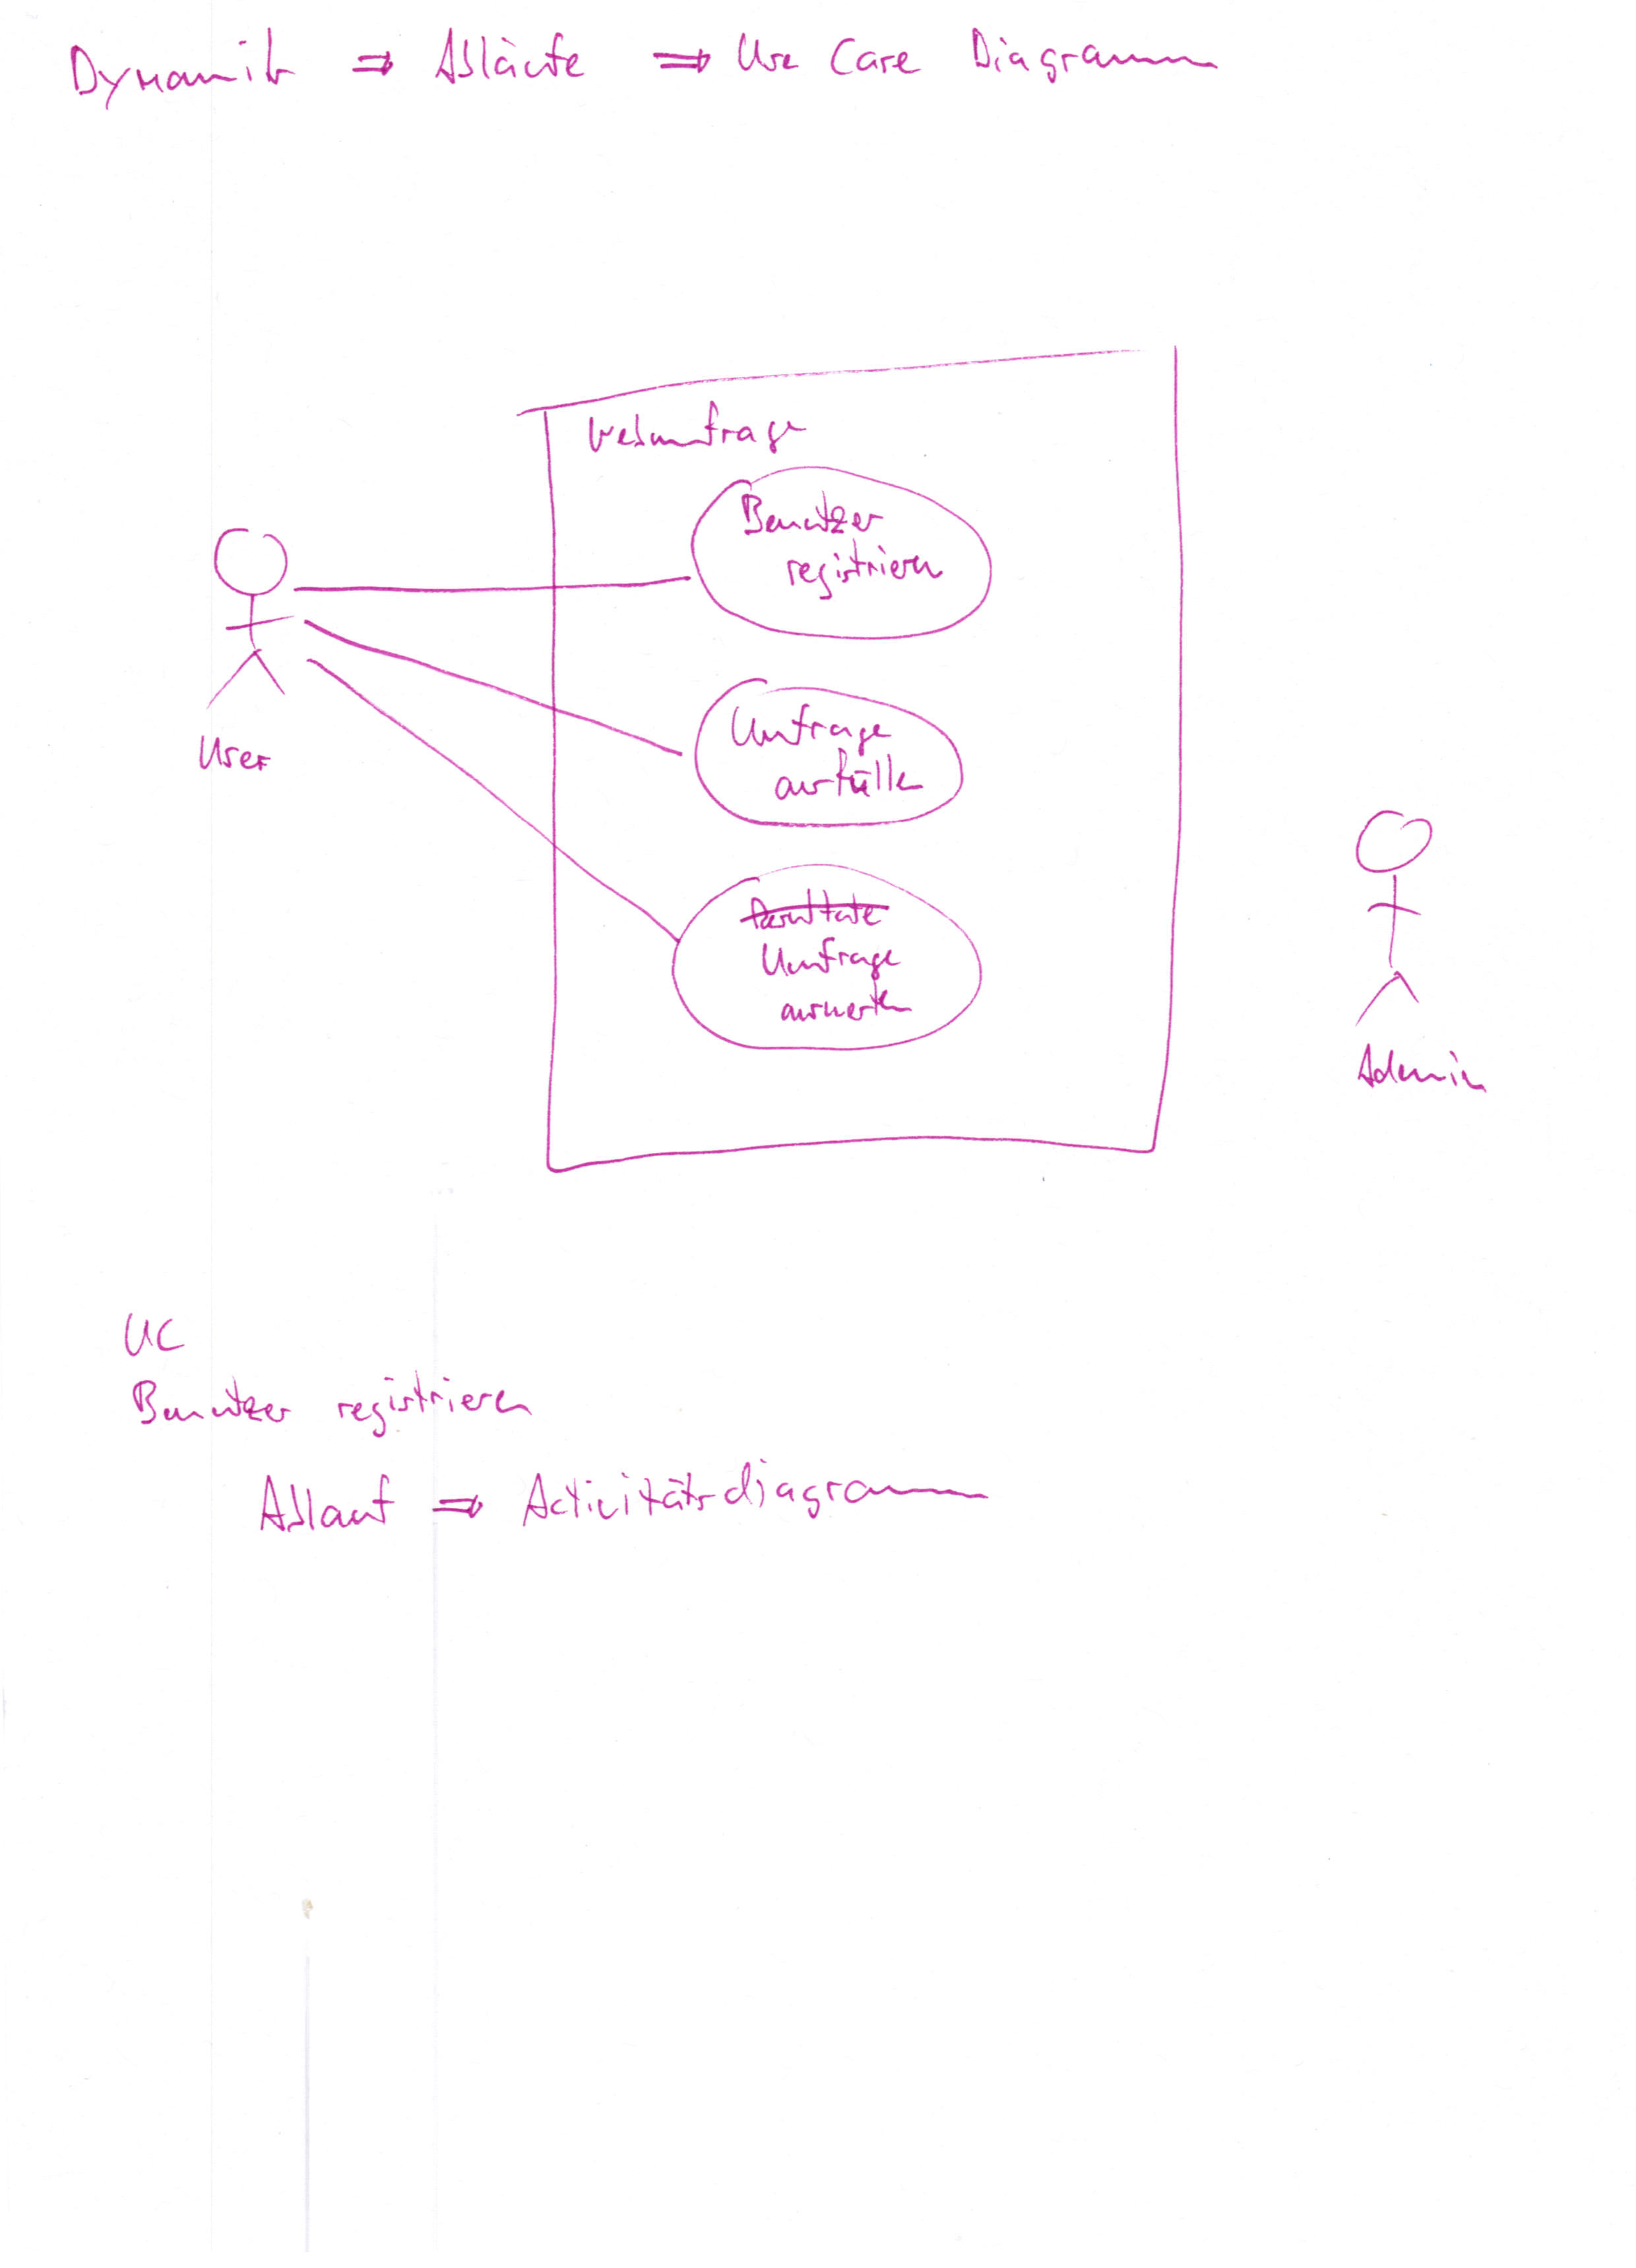 Dynamik ⇒ Abläufe ⇒ Use Case Diagramm
Webumfrage
Benutzer
registrieren
User
Umfrage
ausfüllen
Resultate
Umfrage
auswerten
Admin
UC
Benutzer registrieren
Ablauf ⇒ Activitätsdiagramm